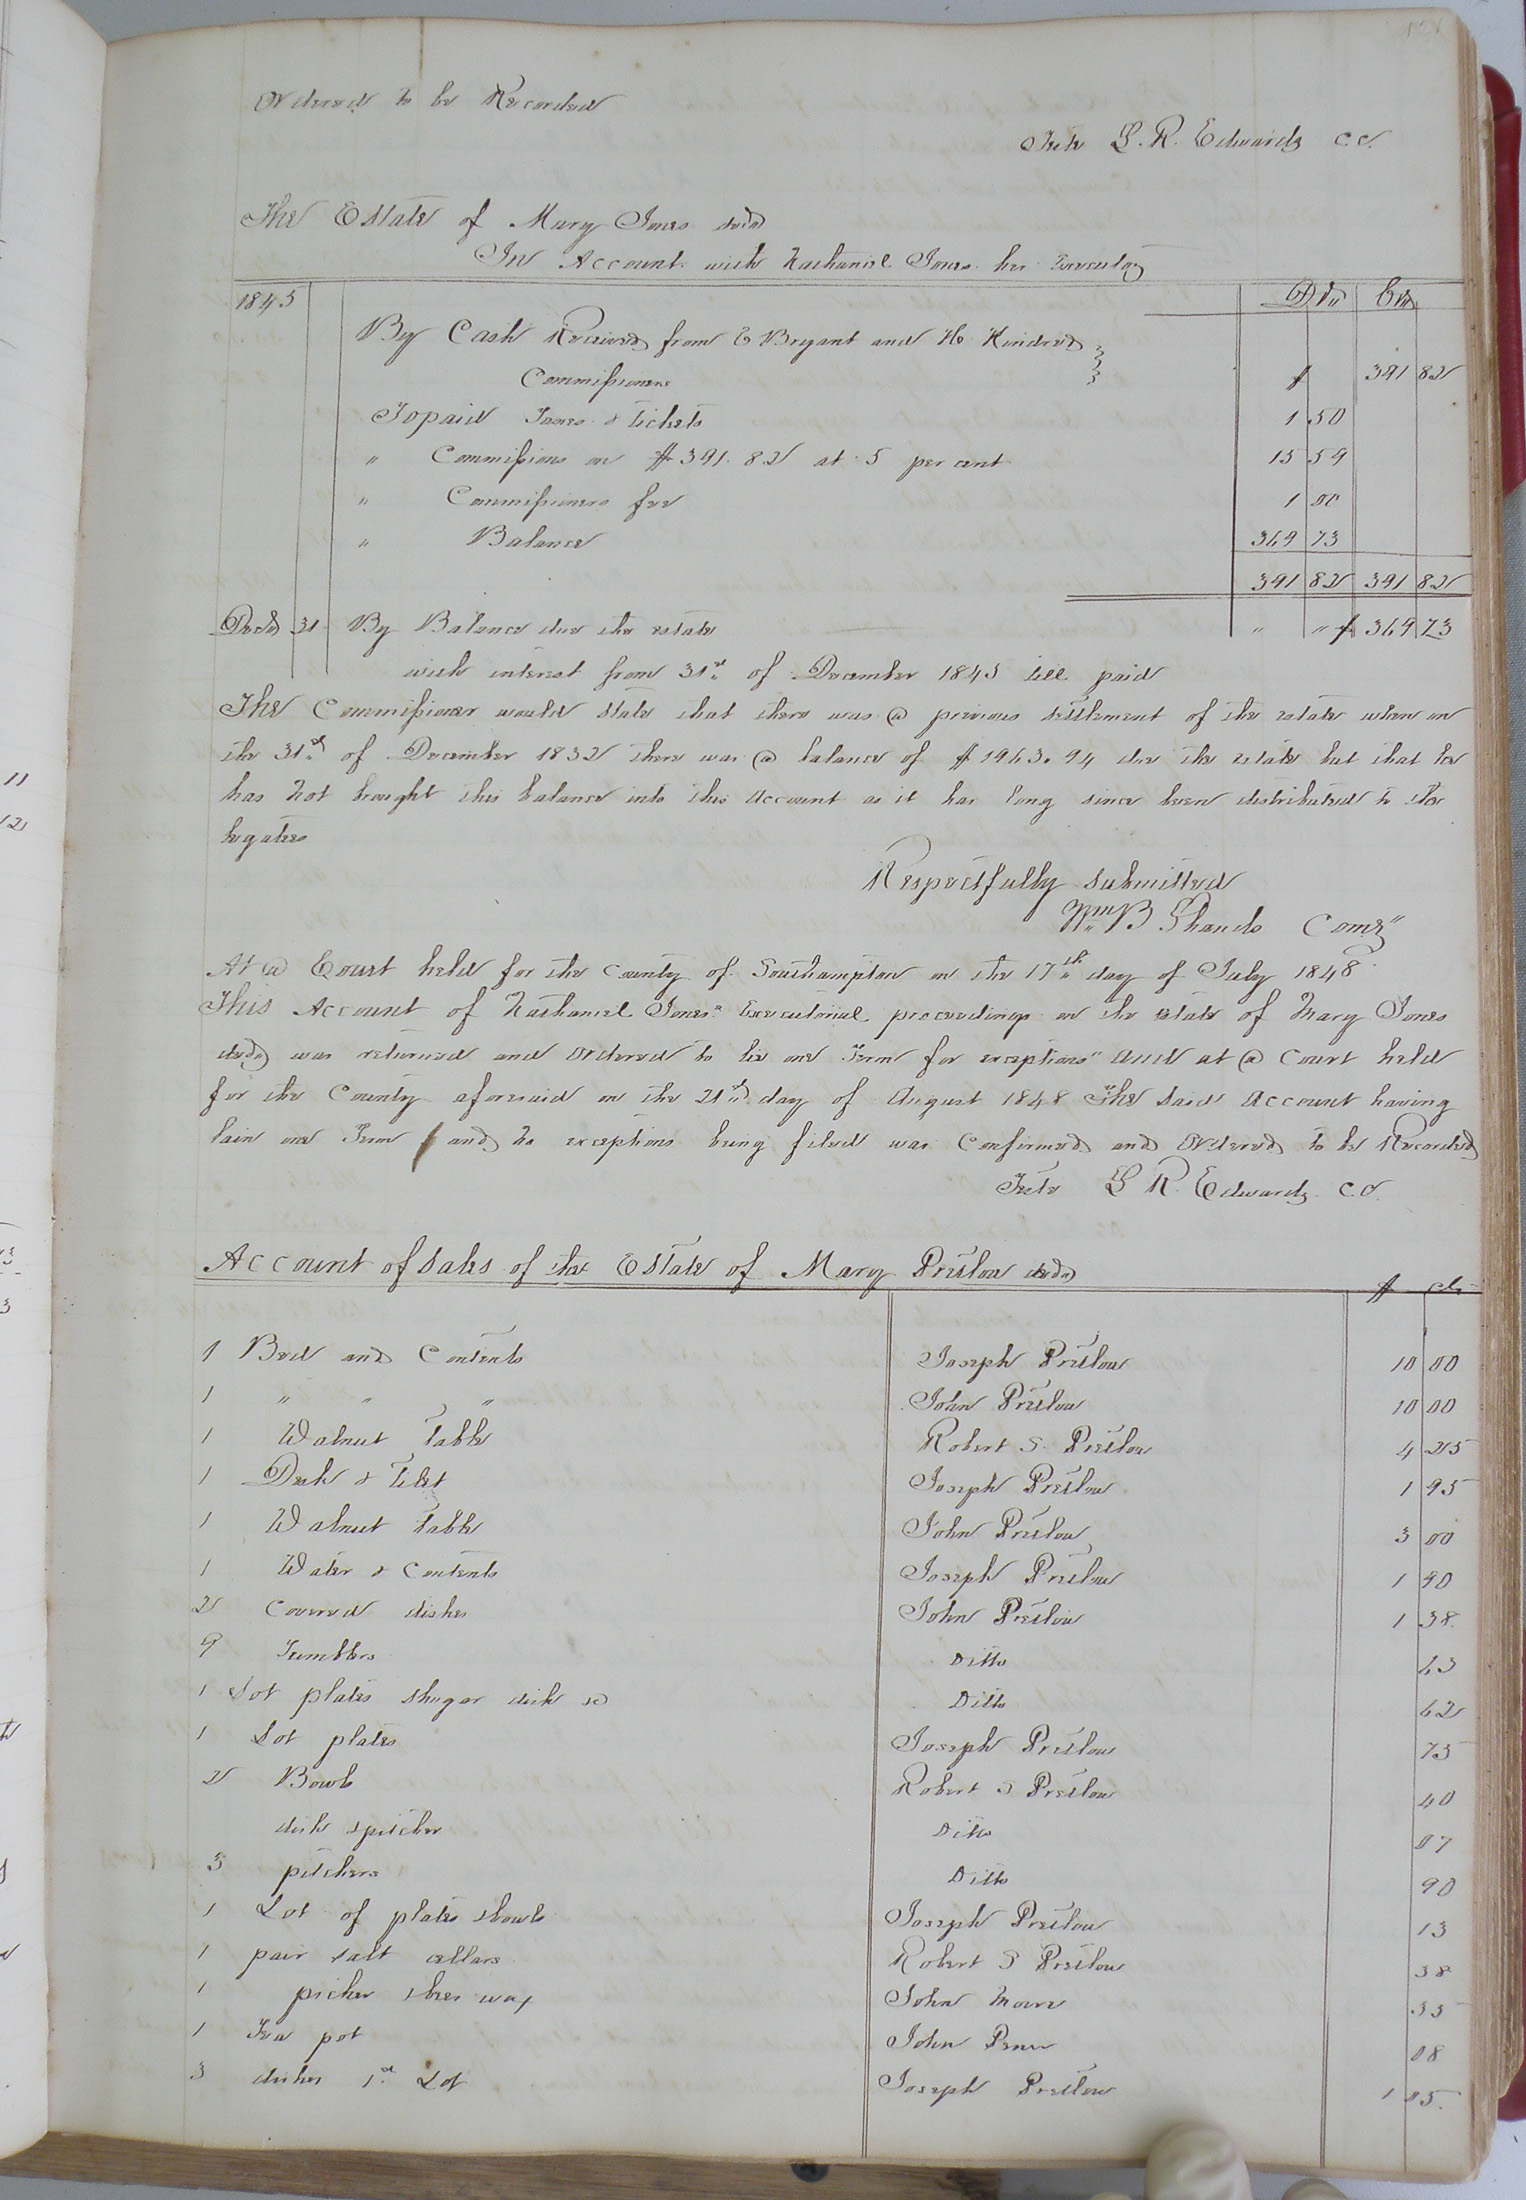 Ordered to be Recorded
Teste L. R. Edwards C.C.
The Estate of Mary Jones decd
In Account with Nathaniel Jones her Executor
1845 Dr. Cr.
By Cash Received from E Bryant and H. Kindred
Commissioners $ 391 82
To paid Taxes & tickets 1 50
" Commissions on $391.82 at 5 per cent 19 59
" Commissioners fee 1 00
" Balance 369 73
391 82 391 82
Decr 31 By Balance due the estate " " $ 369 73
with interest from 31st of December 1845 till paid
The Commissioner would state that there was a previous settlement of the estate when on
the 31st of December 1832 there was a balance of $1963.94 due the estate but that he
has not brought this balance into this account as it has long since been distributed to the
legatees
Respectfully submitted
Wm B Shands Comr
At a Court held for the County of Southampton on the 17th day of July 1848
This Account of Nathaniel Jones' Executorial proceedings on the estate of Mary Jones
decd was returned and Ordered to lie one Term for exceptions" And at a Court held
for the County aforesaid on the 21st day of August 1848 The said Account having
lain one Term and no exceptions being filed was Confirmed and Ordered to be Recorded
Teste L R. Edwards C.C.
Account of Sales of the Estate of Mary Pretlow decd $ cts
1 Bed and Contents Joseph Pretlow 10 00
1 " " " John Pretlow 10 00
1 Walnut Table Robert S. Pretlow 4 25
1 Desk & Joseph Pretlow 1 95
1 Walnut Table John Pretlow 3 00
1 Waiter & Contents Joseph Pretlow 1 90
2 Covered dishes John Pretlow 1 38
9 Tumblers Ditto 63
1 Lot plates Shugar dish &c Ditto 62
1 Lot plates Joseph Pretlow 75
2 Bowls Robert S Pretlow 40
dish & pitcher Ditto 07
3 pitchers Ditto 90
1 Lot of plates & bowls Joseph Pretlow 13
1 pair salt cellars Robert S Pretlow 38
1 picher & bees wax John 33
1 Tea pot John 08
3 dishes 1st Lot Joseph Pretlow 1 05